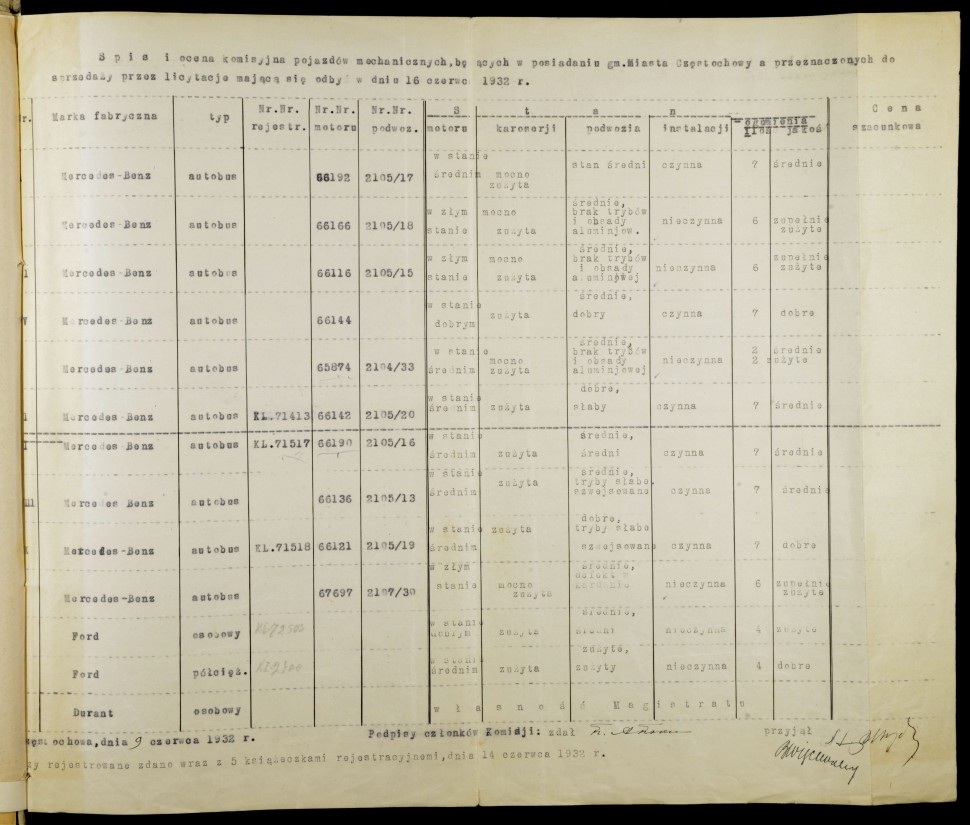 S p i s i ocena komisyjna pojazdów mechanicznych, bę ących w posiadaniu gm.Miasta Częstochowy a przeznaczonych do
sprzedaży przez licytację mającą się odby w dniu 16 czerwc 1932 r.
r. Marka fabryczna typ Nr.Nr. rejestr. Nr.Nr. motoru Nr.Nr. podwoz. S t a n C e n a
motoru karoserji podwozia instalacji ogumienia szacunkowa
Ilość jakość
Mercedes-Benz autobus 66192 2105/17 w stanie średnim mocno zużyta stan średni czynna 7 średnie
Mercedes-Benz autobus 66166 2105/18 w złym stanie mocno zużyta średnie, brak trybów i obsady aluminjow. nieczynna 6 zupełnie zużyte
I Mercedes-Benz autobus 66116 2105/15 w złym stanie mocno zużyta średnie, brak trybów i obsady aluminjowej nieczynna 6 zupełnie zużyte
V Mercedes-Benz autobus 66144 w stanie dobrym zużyta średnie, dobry czynna 7 dobre
Mercedes-Benz autobus 65874 2104/33 w stanie średnim mocno zużyta średnie, brak trybów i obsady aluminjowej nieczynna 2 średnie 2 zużyte
I Mercedes-Benz autobus KL.71413 66142 2105/20 w stanie średnim zużyta dobre, słaby czynna 7 średnie
I Mercedes Benz autobus KL.71517 66190 2105/16 w stanie średnim zużyta średnie, średni czynna 7 średnie
III Mercedes Benz autobus 66136 2105/13 w stanie średnim zużyta średnie, tryby słabe. szwejsowane czynna 7 średnie
X Mercedes-Benz autobus KL.71518 66121 2105/19 w stanie średnim zużyta dobre, tryby słabe szwejsowane czynna 7 dobre
Mercedes-Benz autobus 67697 2107/30 w złym stanie mocno zużyta średnie, defekt w nieczynna 6 zupełnie zużyte
Ford osobowy w stanie dobrym zużyta średnie, średni nieczynna 4 zużyte
Ford półcięż. w stanie średnim zużyta zużyte, zużyty nieczynna 4 dobre
Durant osobowy w ł a s n o ś ć M a g i s t r a t u
zęstochowa, dnia 9 czerwca 1932 r. Podpisy członków Komisji: zdał przyjął
zy rejestrowane zdano wraz z 5 książeczkami rejestracyjnemi, dnia 14 czerwca 1932 r.